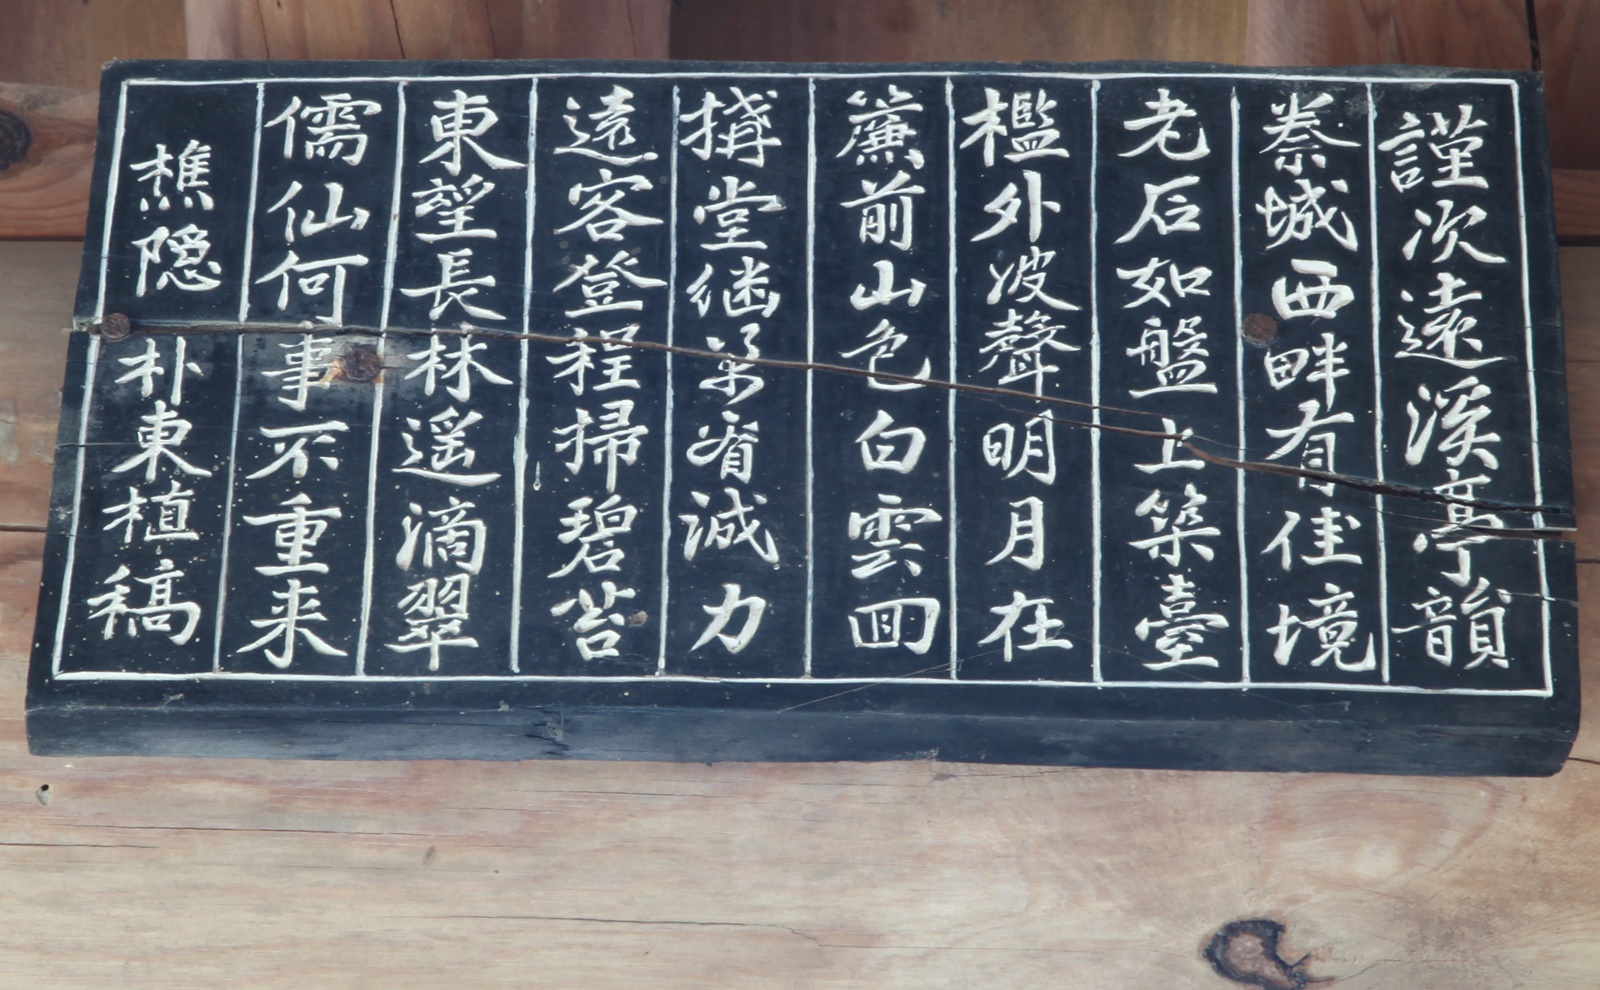 謹次遠溪亭韻
城西畔有佳境
老石如盤上築臺
檻外波聲明月在
簾前山色白雲囬
搆堂継省誠力
遠客登程掃碧苔
東望長林遥滴翠
儒仙何事不重来
樵隠 朴東植稿